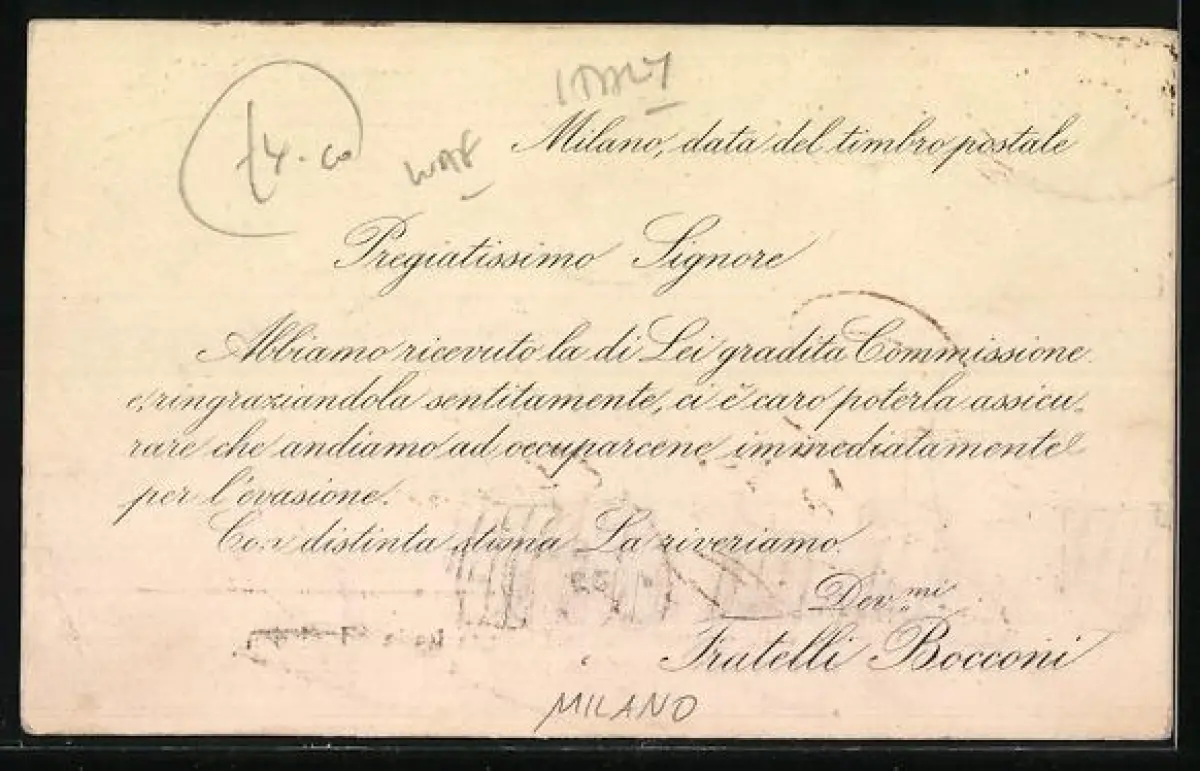 ITALY
£4.00
Milano, data del timbro postale
Pregiatissimo Signore
Abbiamo ricevuto la di Lei gradita Commissione
e, ringraziandola sentitamente, ci è caro poterla assicu-
rare che andiamo ad occuparcene immediatamente
per l'evasione.
Con distinta stima La riveriamo.
Dev.mi
Fratelli Bocconi
MILANO